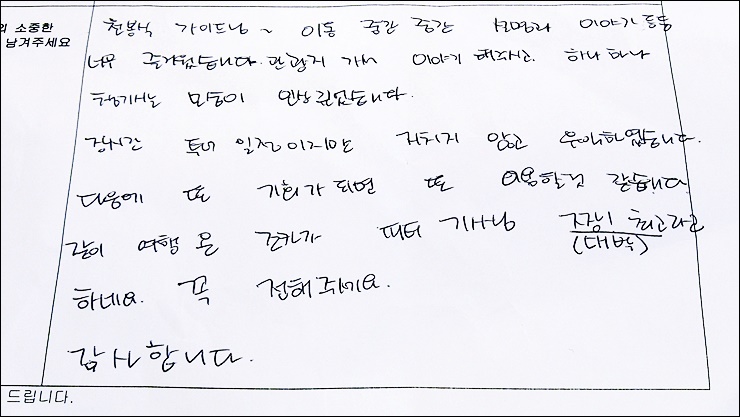 의 소중한
남겨주세요
천봉식 가이드님 ~ 이동 중간 중간 설명과 이야기 등등
너무 즐거웠습니다. 관광지 가서 이야기 해주시고. 하나 하나
챙기시는 모습이 인상 깊었습니다.
장시간 투어 일정이지만 지치지 않고 유쾌하였습니다.
다음에 또 기회가 되면 또 이용할것 같습니다
같이 여행 온 조카가 피터 기사님 장비 최고라고
(대박)
하네요. 꼭 전해주세요.
감사합니다.
드립니다.